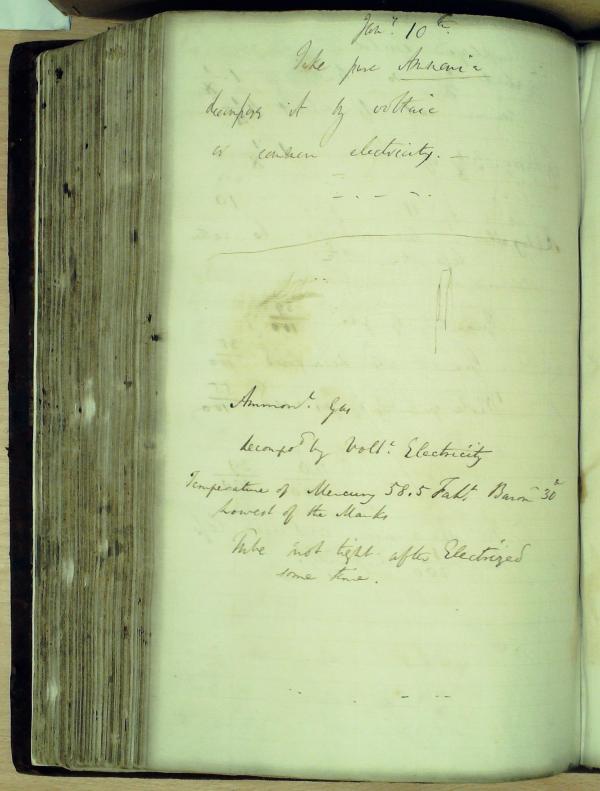 Jany. 10th.
Take pure Ammonia
decompose it by voltaic
or common electricity. —
Ammonl. Gas
decompd by Voltc. Electricity
Temperature of Mercury 58.5 Faht. Barom 30
Lowest of the Marks
Tube not tight after Electrized
some time.